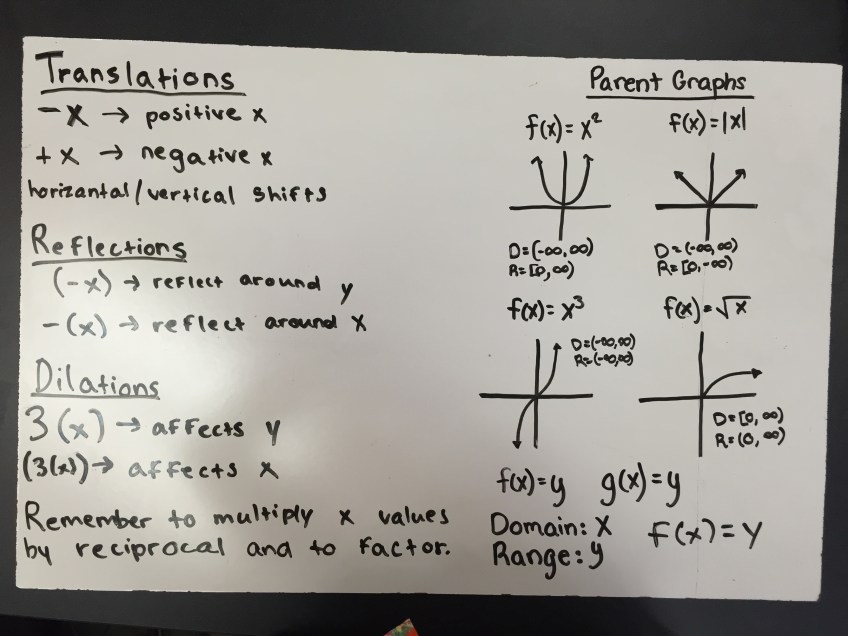 Translations
-x → positive x
+x → negative x
horizantal/vertical shifts
Reflections
(-x) → reflect around y
-(x) → reflect around x
Dilations
3(x) → affects y
(3(x)) → affects x
Remember to multiply x values
by reciprocal and to factor.
Parent Graphs
f(x)=x²
D=(-∞,∞)
R=[0,∞)
f(x)=|x|
D=(-∞,∞)
R=[0,-∞)
f(x)=x³
D=(-∞,∞)
R=(-∞,∞)
f(x)=√x
D=[0,∞)
R=(0,∞)
f(x)=y g(x)=y
Domain: x
Range: y
f(x)=y